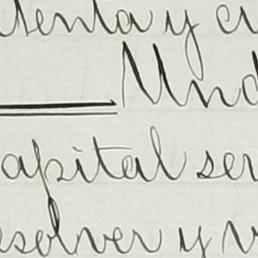 tenta y cu
Und
apital ser
esolver y v